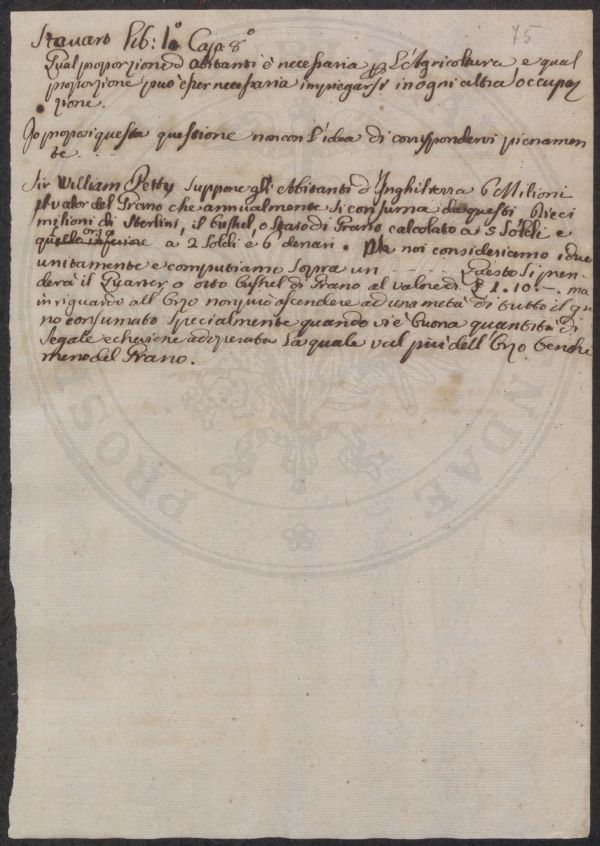 75
Steuart Lib: 1° Capo 8°
Qual proporzione d'abitanti è necessaria p l'Agricoltura e qual
proporzione può esser necessaria impiegarsi in ogni altra occupa
zione.
Io proposi questa questione non con l'idea di corrispondervi pienamen
te
Sir William Petty suppone gli Abitanti d'Inghilterra 6 Milioni
il valor del Grano che annualmente si consuma da questi Dieci
milioni di Sterlini, il bushel o Staio di Grano calcolato a 5 Soldi e
quello inferiore orzo a 2 Soldi e 6 denari. noi consideriamo i due
unitamente e computiamo sopra un questo si pren
derà il Quarter o otto bushel di Grano al valore di £ 1.10 -, ma
in riguardo all'Orzo non può ascendere ad una metà di tutto il gra
no consumato specialmente quando vi è buona quantità di
segale che viene adoperata la quale val più dell'Orzo benché
meno del Grano.
PROSP
NDAE